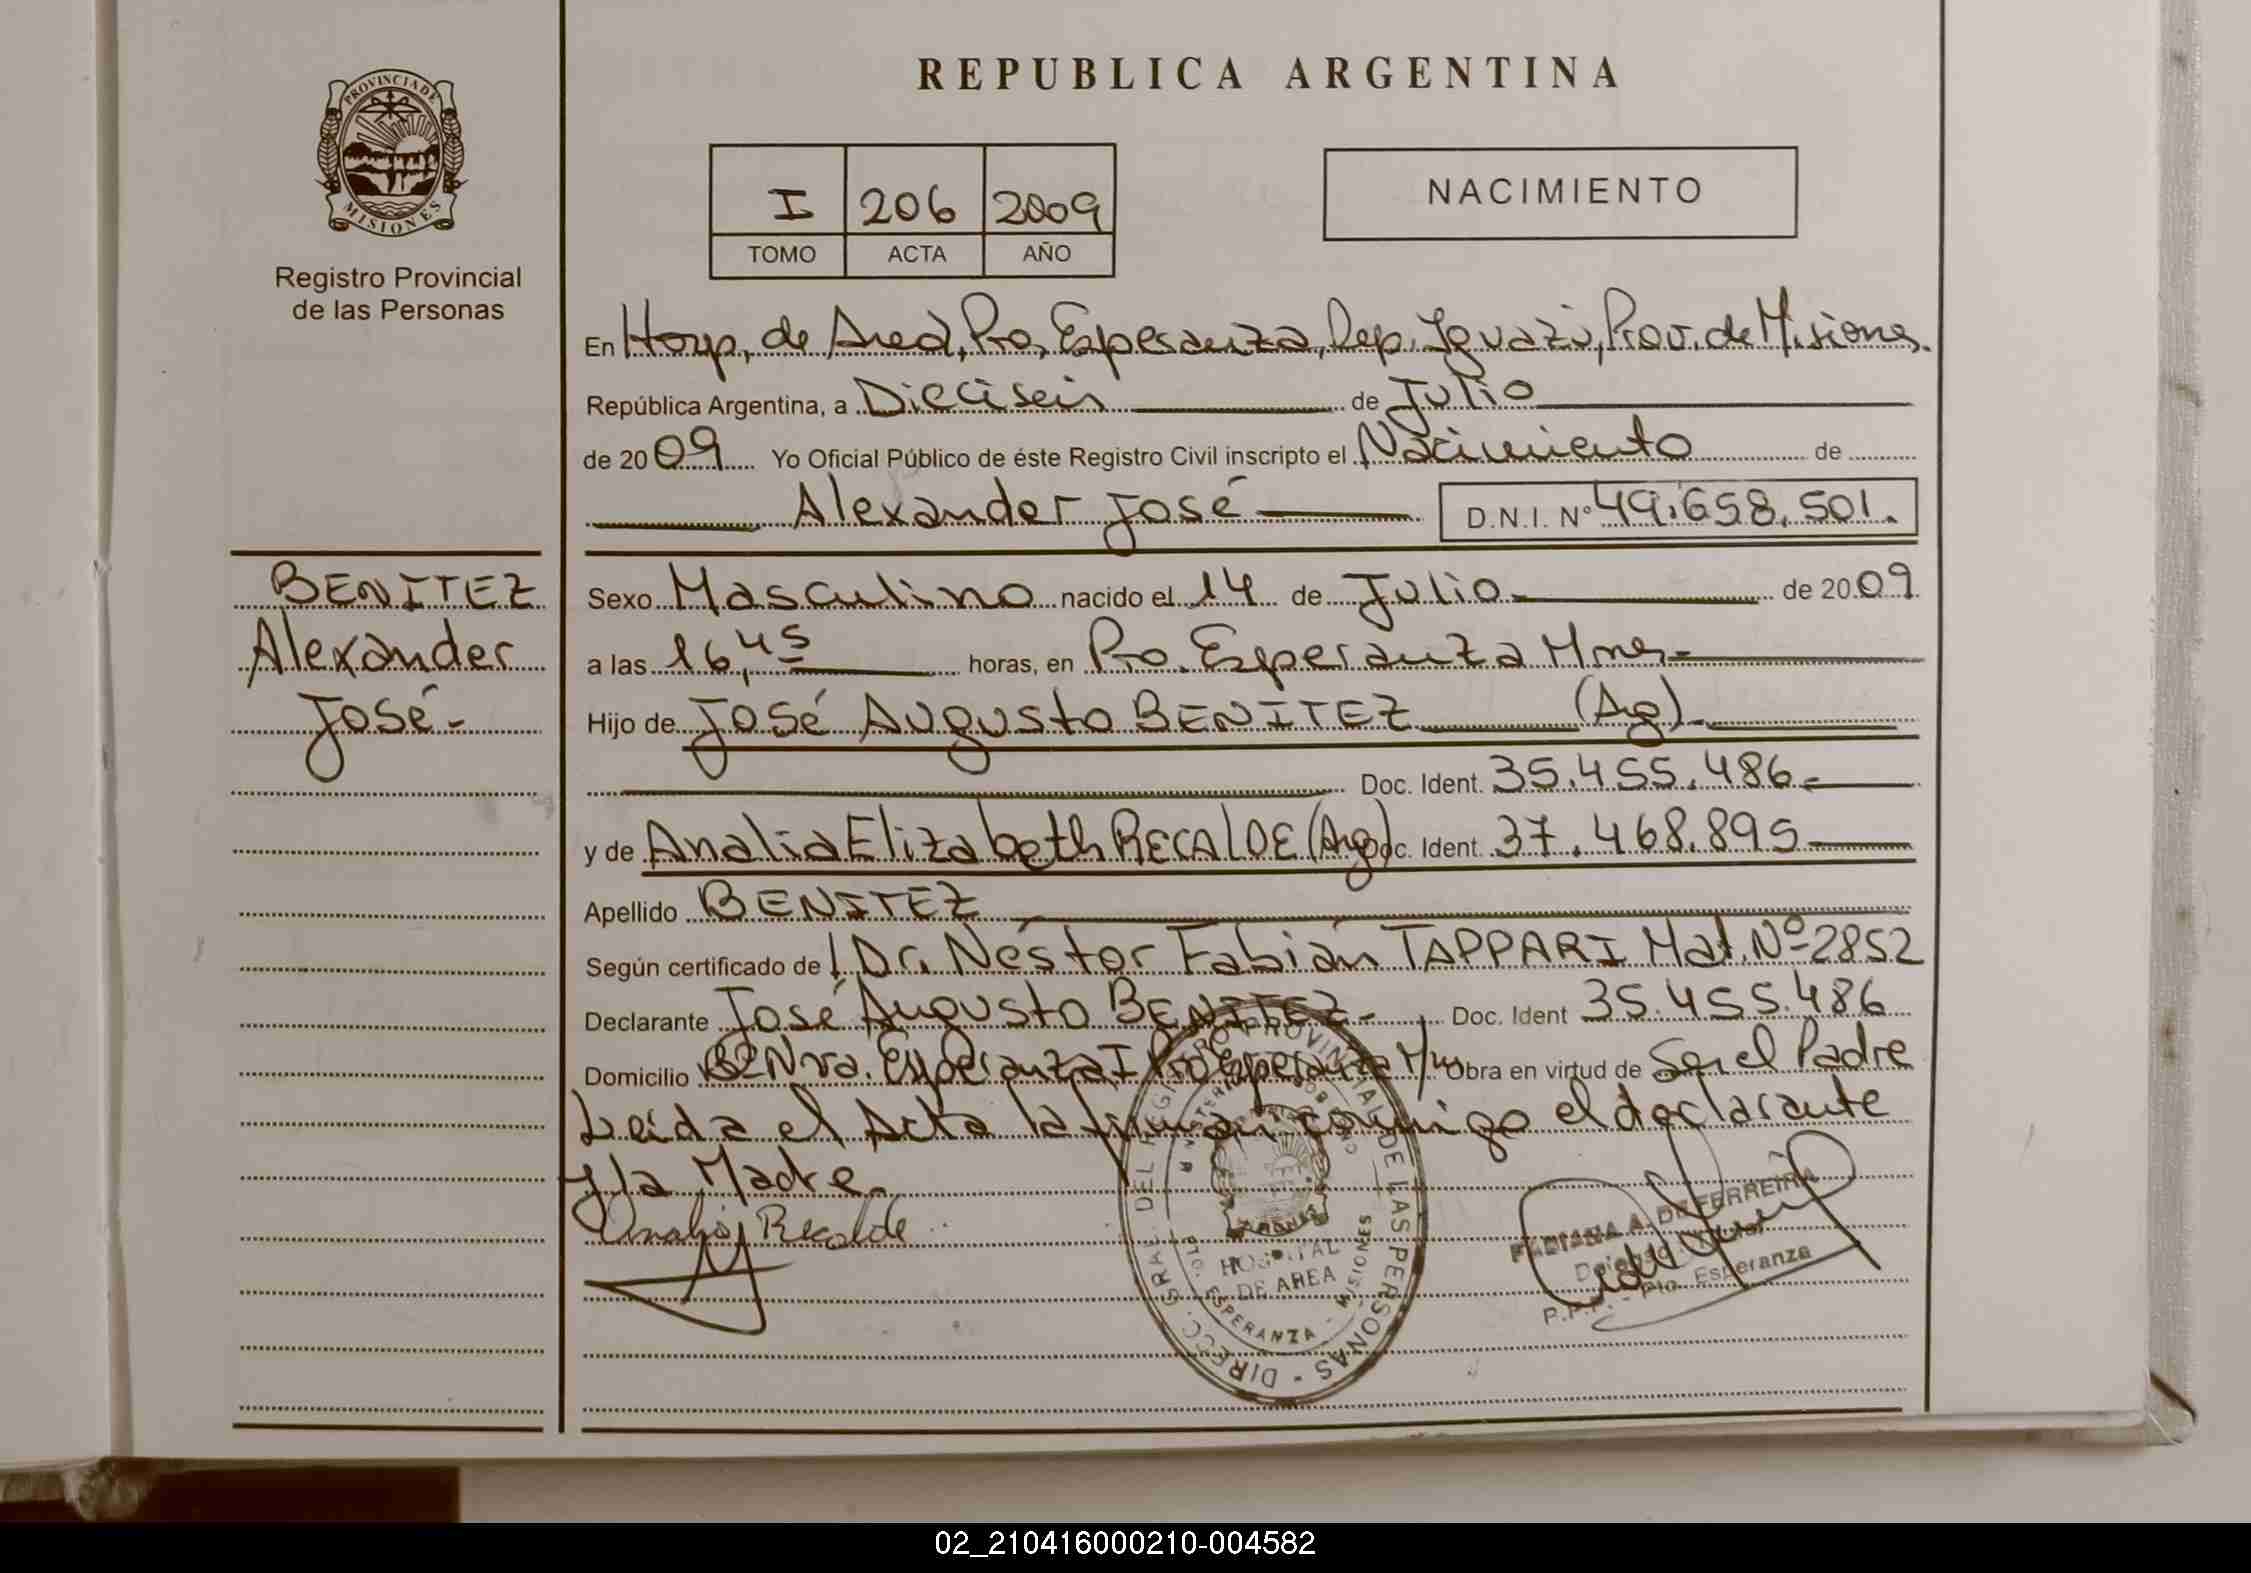 REPUBLICA ARGENTINA
PROVINCIA DE MISIONES
Registro Provincial
de las Personas
I 206 2009
TOMO ACTA AÑO
NACIMIENTO
En Hosp. de Area, Pto. Esperanza, Dep. Iguazú, Prov. de Misiones.
República Argentina, a Dieciseis de Julio
de 2009 Yo Oficial Público de éste Registro Civil inscripto el Nacimiento de
Alexander José D.N.I. Nº 49.658.501.
BENITEZ
Alexander
José.-
Sexo Masculino nacido el 14 de Julio de 2009
a las 16,45 horas, en Pto. Esperanza Mnes.-
Hijo de José Augusto BENITEZ (Arg).-
Doc. Ident. 35.455.486.-
y de Analia Elizabeth RECALDE (Arg) Doc. Ident. 37.468.895
Apellido BENITEZ
Según certificado de Dr. Néstor Fabián TAPPARI Mat. Nº 2852
Declarante José Augusto BENITEZ.- Doc. Ident 35.455.486
Domicilio Bº Nva. Esperanza I Pto Esperanza Obra en virtud de Ser el Padre
Leida el Acta la firman conmigo el declarante
y la Madre.
Analia Recalde
DIRECC. GRAL. DEL REGISTRO PROVINCIAL DE LAS PERSONAS
MINISTERIO DE GOBIERNO
MISIONES
HOSPITAL
DE AREA
PTO. ESPERANZA - MISIONES
FABIANA A. DE FERREIRA
P.P.P. - Pto. Esperanza
02_210416000210-004582